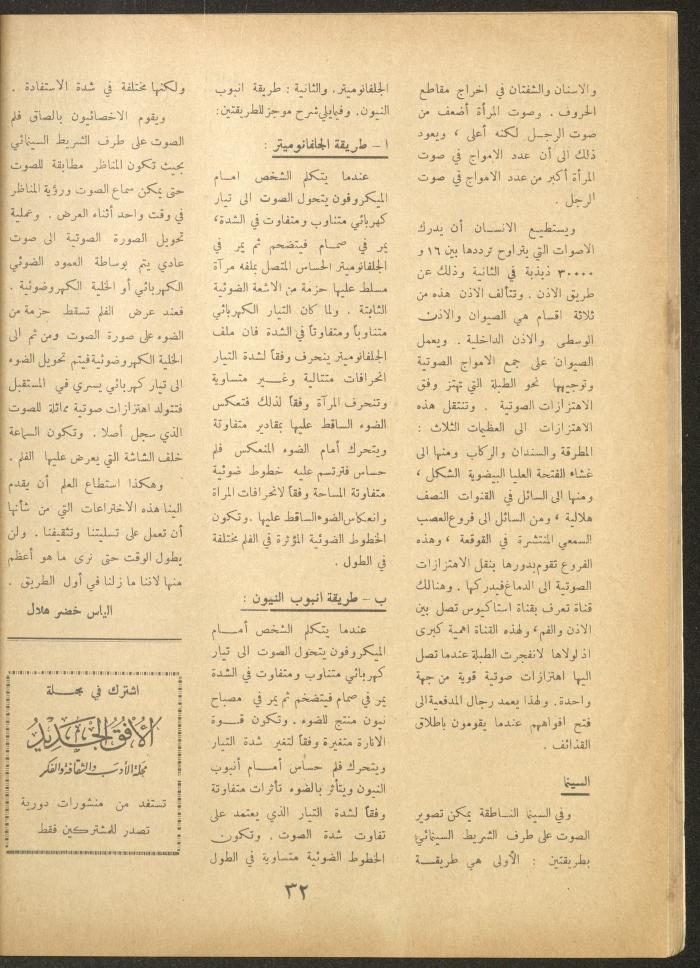 والاسنان والشفتان في اخراج مقاطع
الحروف . وصوت المرأة أضعف من
صوت الرجل لكنه أعلى ، ويعود
ذلك الى أن عدد الامواج في صوت
المرأة أكبر من عدد الامواج في صوت
الرجل .
ويستطيع الانسان أن يدرك
الاصوات التي يتراوح ترددها بين ١٦ و
٣٠٠٠٠ ذبذبة في الثانية وذلك عن
طريق الاذن . وتتألف الاذن هذه من
ثلاثة اقسام هي الصيوان والاذن
الوسطى والاذن الداخلية . ويعمل
الصيوان على جمع الامواج الصوتية
وتوجيهها نحو الطبلة التي تهتز وفق
الاهتزازات الصوتية . وتنتقل هذه
الاهتزازات الى العظيمات الثلاث :
المطرقة والسندان والركاب ومنها الى
غشاء الفتحة العليا البيضوية الشكل ،
ومنها الى السائل في القنوات النصف
هلالية ، ومن السائل الى فروع العصب
السمعي المنتشرة في القوقعة ، وهذه
الفروع تقوم بدورها بنقل الاهتزازات
الصوتية الى الدماغ فيدركها . وهنالك
قناة تعرف بقناة استاكيوس تصل بين
الاذن والفم ، ولهذه القناة اهمية كبرى
اذ لولاها لانفجرت الطبلة عندما تصل
اليها اهتزازات صوتية قوية من جهة
واحدة . ولهذا يعمد رجال المدفعية الى
فتح افواههم عندما يقومون باطلاق
القذائف .
السينما
وفي السينما الناطقة يمكن تصوير
الصوت على طرف الشريط السينمائي
بطريقتين : الأولى هي طريقة
الجلفانوميتر . والثانية : طريقة انبوب
النيون . وفيما يلي شرح موجز للطريقتين :
ا – طريقة الجلفانوميتر :
عندما يتكلم الشخص امام
الميكروفون يتحول الصوت الى تيار
كهربائي متناوب ومتفاوت في الشدة ،
يمر في صمام فيتضخم ثم يمر في
الجلفانوميتر الحساس المتصل بملفه مرآة
مسلط عليها حزمة من الاشعة الضوئية
الثابتة . ولما كان التيار الكهربائي
متناوباً ومتفاوتاً في الشدة فان ملف
الجلفانوميتر ينحرف وفقاً لشدة التيار
انحرافات متتالية وغير متساوية
وتنحرف المرآة وفقاً لذلك فتعكس
الضوء الساقط عليها بمقادير متفاوتة
ويتحرك أمام الضوء المنعكس فلم
حساس فترتسم عليه خطوط ضوئية
متفاوتة المساحة وفقاً لانحرافات المراة
وانعكاس الضوء الساقط عليها . وتكون
الخطوط الضوئية المؤثرة في الفلم مختلفة
في الطول .
ب – طريقة انبوب النيون :
عندما يتكلم الشخص أمام
الميكروفون يتحول الصوت الى تيار
كهربائي متناوب ومتفاوت في الشدة
يمر في صمام فيتضخم ثم يمر في مصباح
نيون منتج للضوء . وتكون قوة
الانارة متغيرة وفقاً لتغير شدة التيار
ويتحرك فلم حساس أمام أنبوب
النيون ويتأثر بالضوء تأثرات متفاوتة
وفقاً لشدة التيار الذي يعتمد على
تفاوت شدة الصوت . وتكون
الخطوط الضوئية متساوية في الطول
ولكنها مختلفة في شدة الاستفادة .
ويقوم الاخصائيون بالصاق فلم
الصوت على طرف الشريط السينمائي
بحيث تكون المناظر مطابقة للصوت
حتى يمكن سماع الصوت ورؤية المناظر
في وقت واحد أثناء العرض . وعملية
تحويل الصورة الصوتية الى صوت
عادي يتم بوساطة العمود الضوئي
الكهربائي أو الخلية الكهروضوئية .
فعند عرض الفلم تسقط حزمة من
الضوء على صورة الصوت ومن ثم الى
الخلية الكهروضوئية فيتم تحويل الضوء
الى تيار كهربائي يسري في المستقبل
فتتولد اهتزازات صوتية مماثلة للصوت
الذي سجل أصلا . وتكون السماعة
خلف الشاشة التي يعرض عليها الفلم .
وهكذا استطاع العلم أن يقدم
الينا هذه الاختراعات التي من شأنها
أن تعمل على تسليتنا وتثقيفنا . ولن
يطول الوقت حتى نرى ما هو أعظم
منها لاننا ما زلنا في أول الطريق .
الياس خضر هلال
اشترك في مجلة
الأفق الجديد
مجلة الأدب والثقافة والفكر
تستفد من منشورات دورية
تصدر للمشتركين فقط
٣٢